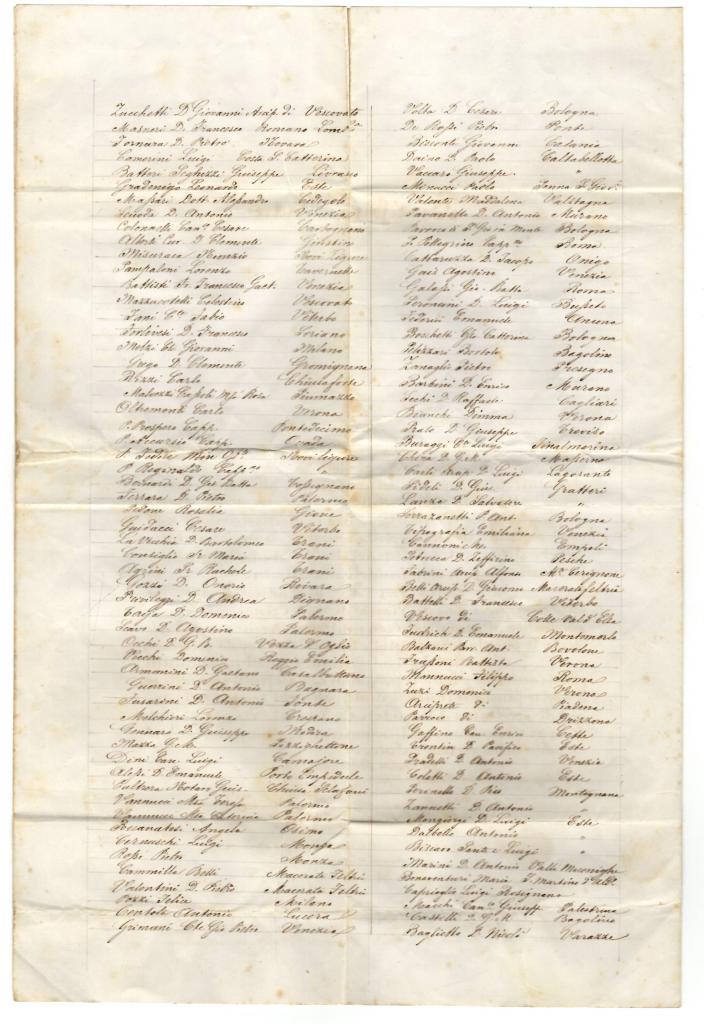 Zucchetti D. Giovanni Arcip. di Vescovato
Masneri D. Francesco Romano Lomb.
Fornara D. Pietro Novara
Camerini Luigi Costa S. Catterina
Battori Giuseppe Livrasco
Gradenigo Leonardo Este
Massari Dott. Alessandro
Scuola D. Antonio Venezia
Colonnetti Can. Cesare Carbognano
Alberti Cur. D. Clemente
Misuraca Nunzio Novi Ligure
Pampaloni Lorenzo
Battisti Fr. Francesco Gaet. Venezia
Mazzucotelli Celestino Vescovato
Fani C. Fabio Viterbo
Fortivesi D. Francesco Soriano
Melzi Giovanni Milano
Grego D. Clemente Gromignana
Rizzi Carlo Chiusaforte
Malvezzi Capoli Rosa Piumazzo
Oltremonti Carlo Verona
P. Prospero Capp. Pontedecimo
P. Accursio Capp. Ovada
Novi Ligure
P. Reginaldo Capp. "
Bernardi D. Gio Batta Cossignano
Ferrara D. Pietro Palermo
Rosalia Giove
Guidacci Cesare Viterbo
La Vecchia D. Bartolomeo Trani
Consiglio Sr. Maria Trani
Azzini Sr. Rachele Trani
Gozzi D. Onorio Rivara
Privileggi D. Andrea Dignano
Caeja D. Domenico Palermo
Scavo D. Agostino Palermo
Occhi D. G. B. Vezza d'Oglio
Vecchi Domenico Reggio Emilia
Armanini D. Gaetano Casa Buttano
Guerrini D. Antonio Bagnara
Susarini D. Antonio Ponte
Melchiori Lorenzo Crespano
Gennaro D. Giuseppe Modica
Mazza G. B. Pizzighettone
Dini Can. Luigi Camajore
Alessi D. Emanuele Porto Empedocle
Notaro Gius. Chiusa Sclafani
Vannucci Teresa Palermo
Vannucci Palermo
Boccanatesi Angela Osimo
Cernuschi Luigi Monza
Rossi Pietro Monza
Cammilla Belli Macerata Feltria
Valentini D. Pietro Macerata Feltria
Pozzi Felice Milano
Centola Antonio Lucera
Grimani Cte Gio Pietro Venezia
Volta D. Cesare Bologna
De Rossi Pietro Ponte
Bisconti Giovanni Catania
Daino D. Paolo Caltabellotta
Vaccaro Giuseppe "
Menucci Paolo
Velonte Maddalena Valstagna
Favanello D. Antonio Murano
Bologna
P. Pellegrino Capp. Roma
Cattaruzza D. Jacopo Onigo
Gais Agostino Venezia
Galassi Gio. Batta Roma
Feronini D. Luigi Busseto
Fedeni Emanuele Ancona
Boschetti Catterina Bologna
Pelizzari Bortolo Bagolino
Zanaglio Pietro Preseglie
Barbini D. Enrico Murano
Secchi D. Raffaele Cagliari
Bianchi Dimma Verona
Prato D. Giuseppe Treviso
Buraggi C. Luigi Finalmarina
Chiesa D. G. B. Maserno
Carli Arcip. D. Luigi Lagosanto
Fideli D. Giu. Gratteri
Lanza D. Salvatore "
Serrazanetti P. Ant. Bologna
Tipografia Emiliana Venezia
Cannoniche Empoli
Petrucca D. Zeffirino Pesche
Fabrini Arcip. Alfonso M. Cerignone
Belli Arcip. D. Giacomo Maceratafeltria
Battelli D. Francesco Viterbo
Vescovo di Colle Val d'Elsa
Fredrich D. Emanuele Montemerlo
Balzani Par. Ant. Bovolone
Frassoni Battista Verona
Mannucci Filippo Roma
Zuzi Domenica Verona
Arciprete di Piadena
Parroco di Drizzona
Gaffino Can. Enrico Ceste
Trentin D. Pacifico Este
Pradelli D. Antonio Venezia
Coletti D. Antonio Este
Ferinello D. Pio Montagnana
Zannetti D. Antonio "
Mengiorgi D. Luigi Este
Dalbello Antonio
Biscaro Sante e Luigi "
Marini D. Antonio Valle
Bonaventura Maria S. Martino
Capriglio Luigi Rosignano
Macchi Can. Giusepp. Palestrina
Castelli D. G. B. Bagolino
Baglietto D. Nicolò Varazze